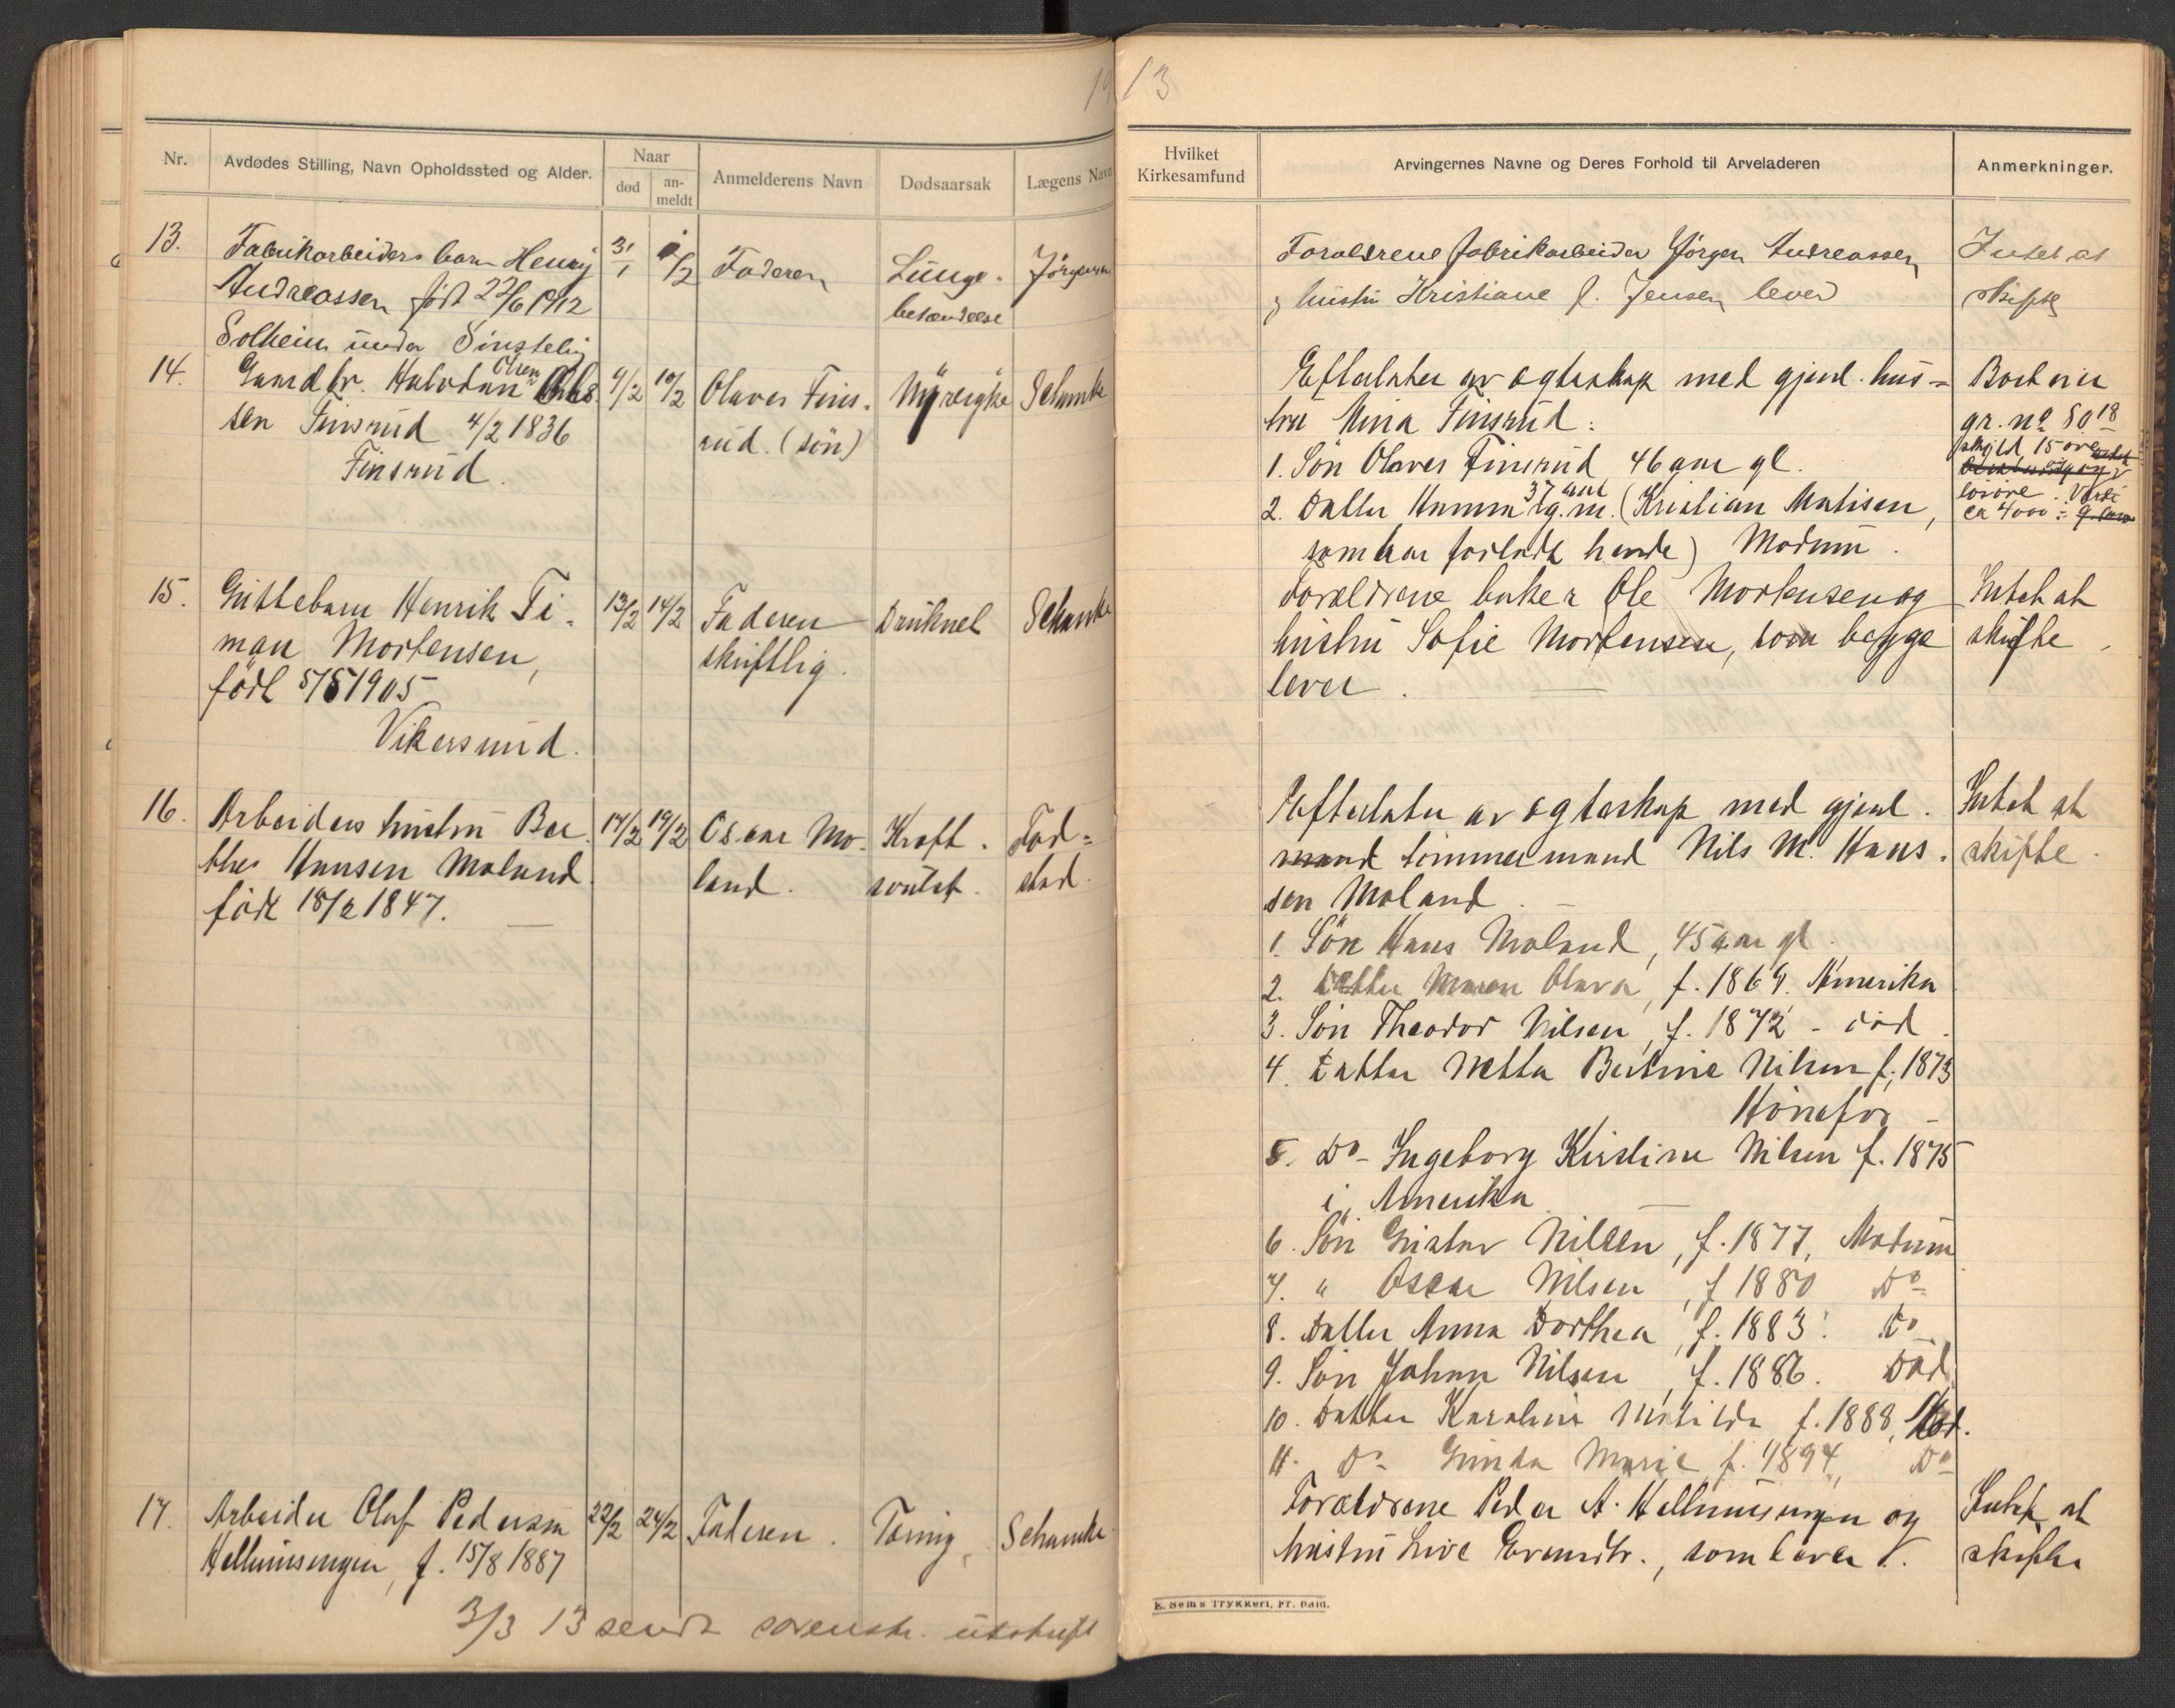 1913
Nr.
Avdødes Stilling, Navn Opholdssted og Alder.
Naar
død
an-
meldt
Anmelderens Navn
Dødsaarsak
Lægens Navn
13.
Fabrikarbeiders barn Henry
Andreassen født 22/6 1912
Solheim under
31/1
1/2
Faderen
Lunge-
betændelse
Jørgensen
14.
Gaardbr. Halvdan Olsen
sen Finsrud 4/2 1836
Finsrud.
9/2
10/2
Olaves Fins-
rud. (søn)
Schanke
15.
Guttebarn Henrik Ti-
man Mortensen,
født 5/5 1905
Vikersund.
13/2
14/2
Faderen
skriftlig.
Druknet
Schanke
16.
Arbeiders hustru Ber-
the Hansen Moland
född 18/2 1847.
17/2
19/2
Oscar Mo-
land.
Kræft-
svulst.
Fod=
stad.
17.
Arbeider Olaf Pedersen
Hellumsengen, f. 15/8 1887
22/2
24/2
Faderen.
Tæring,
Schanke.
3/3 13 sendt sorensk. utskrift
Hvilket
Kirkesamfund
Arvingernes Navne og Deres Forhold til Arveladeren
Anmerkninger.
Forældrene fabrikarbeider Jørgen Andreassen
og hustru Kristiane f. Jensen lever
Intet at
skifte
Efterlater av ægteskap med gjenl. hus=
tru Mina Finsrud:
1. Søn Olaves Finsrud 46 aar gl.
2. Datter Hanna 37 aar g.m. (Kristian Matisen,
som har forladt hende) Modum.
gr. no 80 18
skyld 15 øre
Verdi
ca 4000:
Forældrene baker Ole Mortensen og
hustru Sofie Mortensen, som begge
lever.
Intet at
skifte.
Efterlater av ægteskap med gjenl.
mand tømmermand Nils M. Han-
sen Moland.
Intet at
skifte.
1. Søn Hans Moland, 45 aar gl.
2. Datter Maren Olava, f. 1869. Amerika
3. Søn Theodor Nilsen, f. 1872 - død.
4. Datter Metta Bertine Nilsen f. 1873
Hønefos
5. Do- Ingeborg Kirstine Nilsen f. 1875
i Amerika
6. Søn Gustav Nilsen, f. 1877, Modum
7. " Oscar Nilsen, f 1880 Do
8. Datter Anna Dorthea, f. 1883. Do
9. Søn Johan Nilsen, f. 1886. Død.
10. Datter Karoline Matilda f. 1888, Mod.
11. Do Gunda Marie f. 1894, Do
Forældrene Peder A. Hellumsengen og
hustru Live Evendtr., som lever.
Intet at
skifte
E. Sems Trykkeri, Fr. Hald.